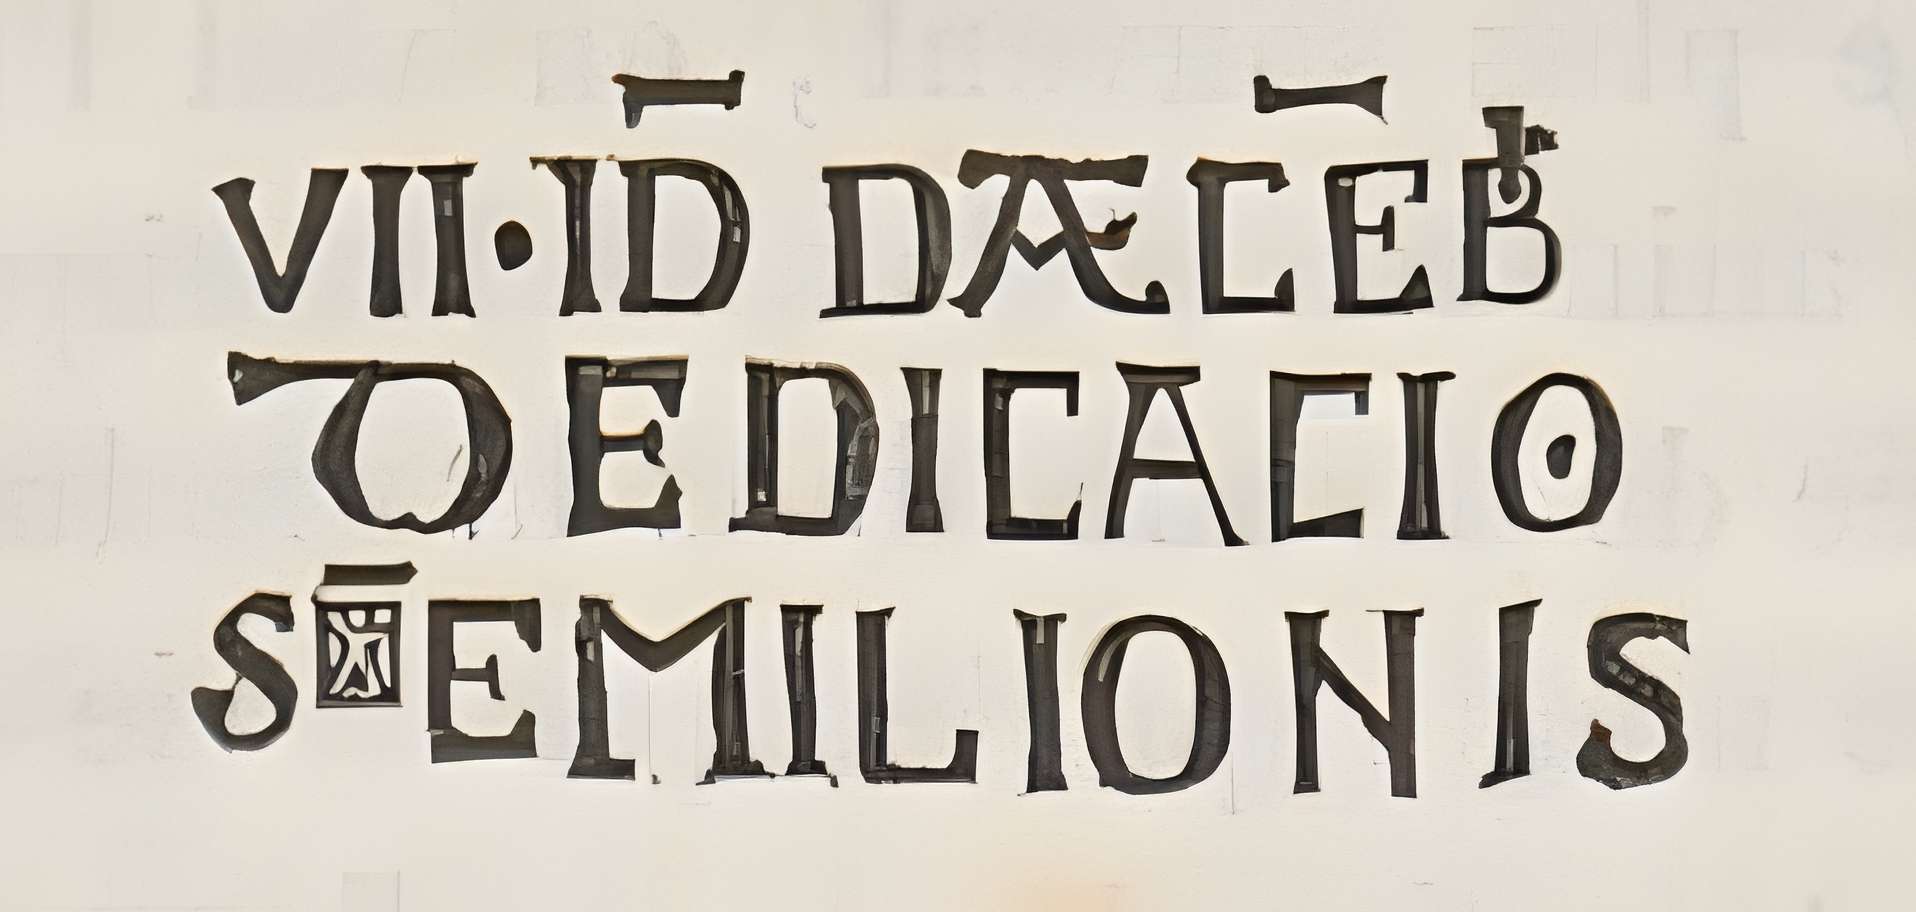 VII·ID DÆCEB
DEDICACIO
S EMILIONIS